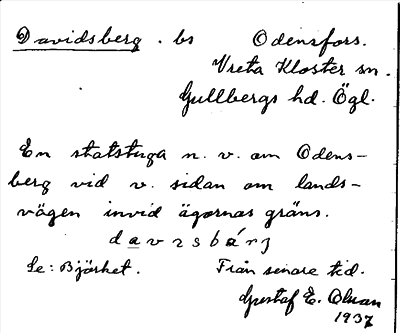 Davidsberg. bs Odensfors.
Vreta Kloster sn.
Gullbergs hd. Ögl.
En statstuga n. v. om Odens-
berg vid v. sidan om lands-
vägen invid ägornas gräns.
davɪsbárj
Se: Björket. Från senare tid.
Gustaf E.
1937